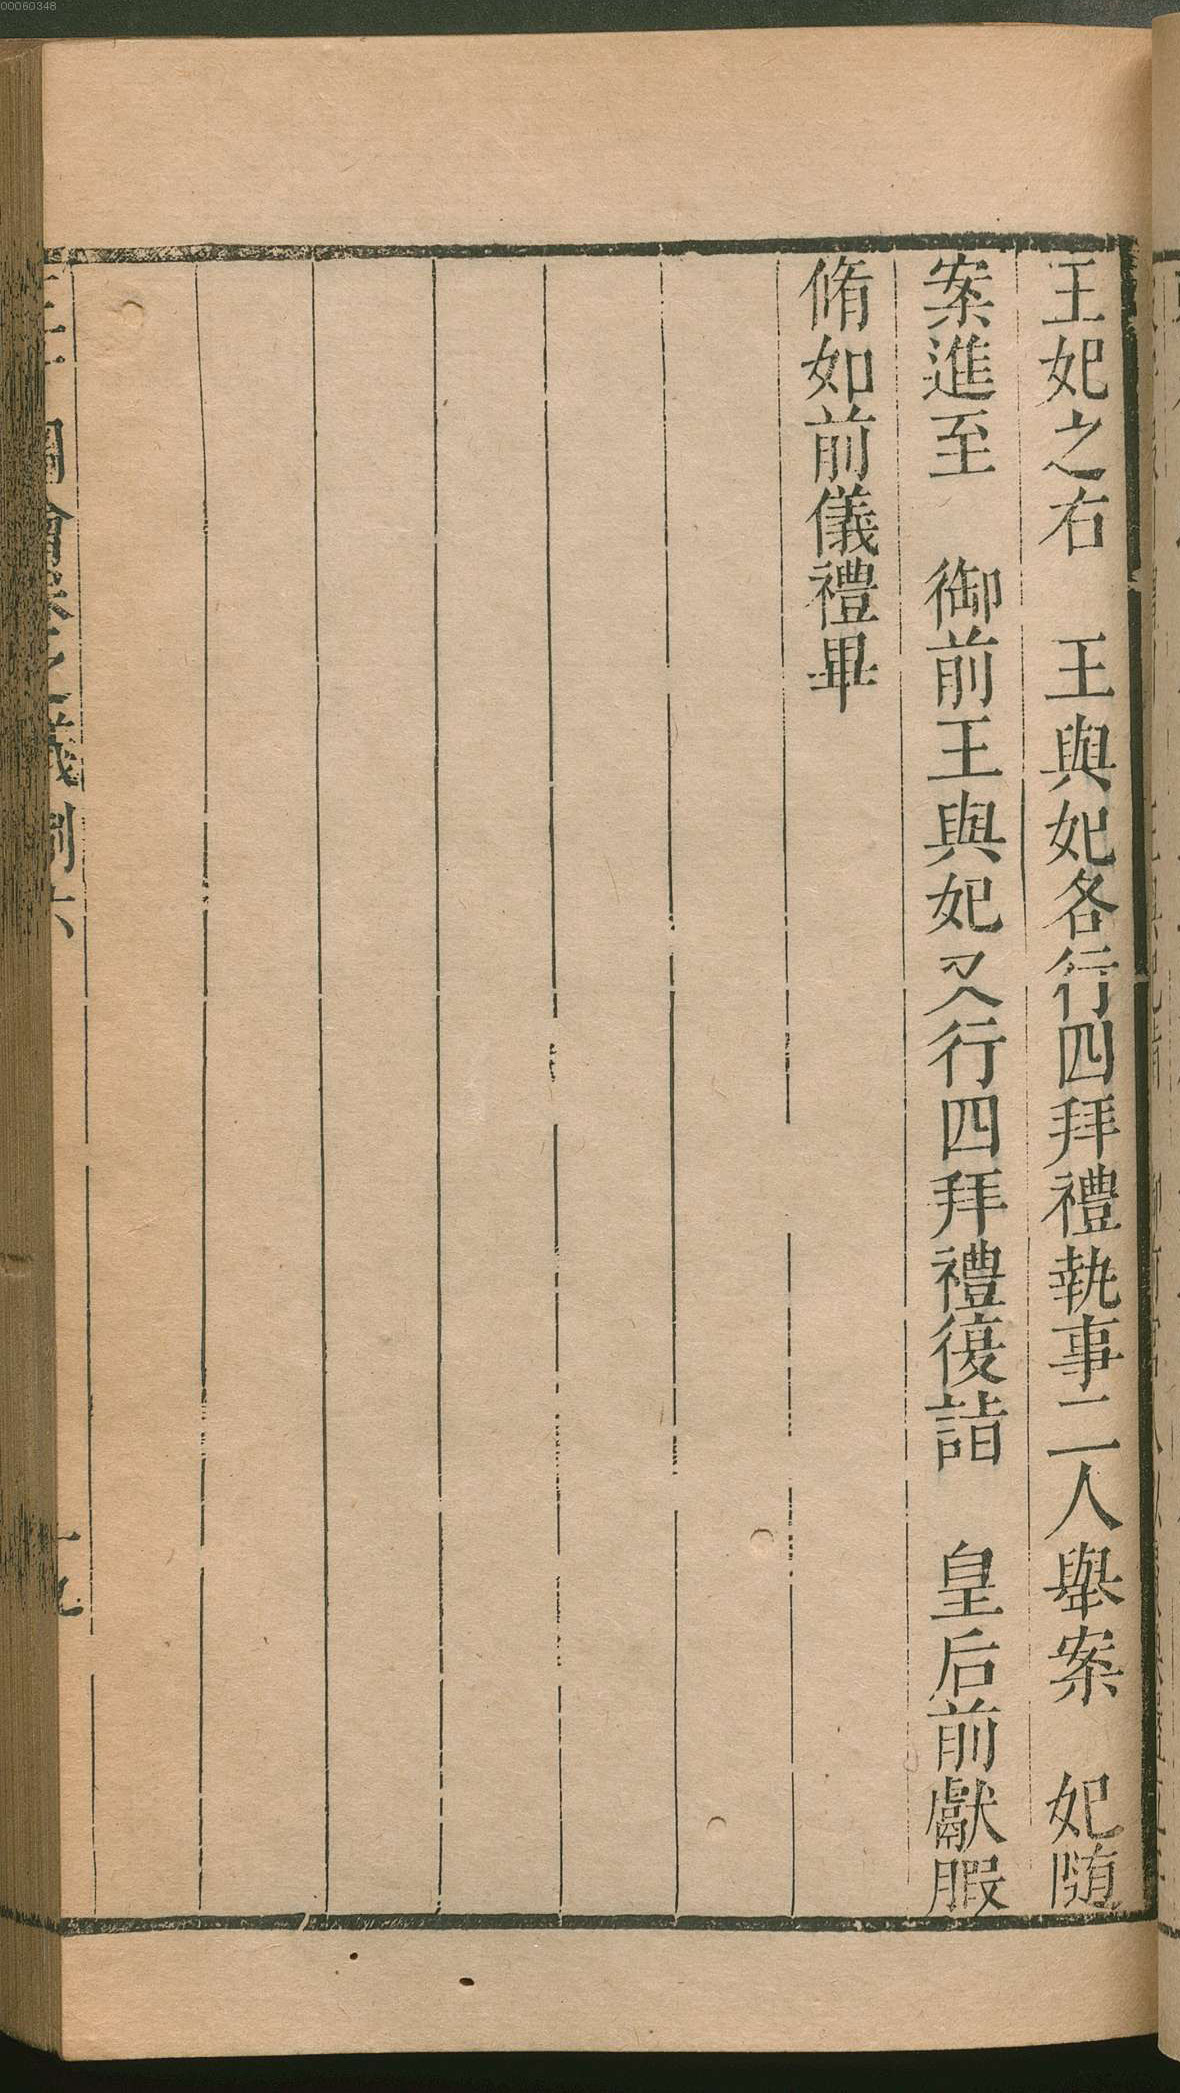 王妃之右　王與妃各行四拜禮執事二人舉案　妃随
案進至　御前王與妃又行四拜禮復詣　皇后前獻腶
脩如前儀禮畢
圖會卷之儀制六
十九
00060348